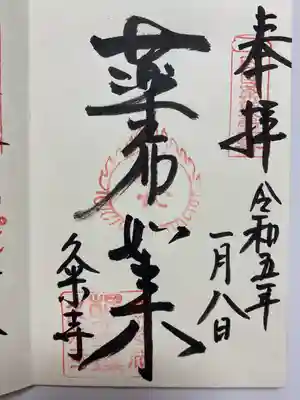 奉拝
令和五年
一月八日
薬師如来
久米寺